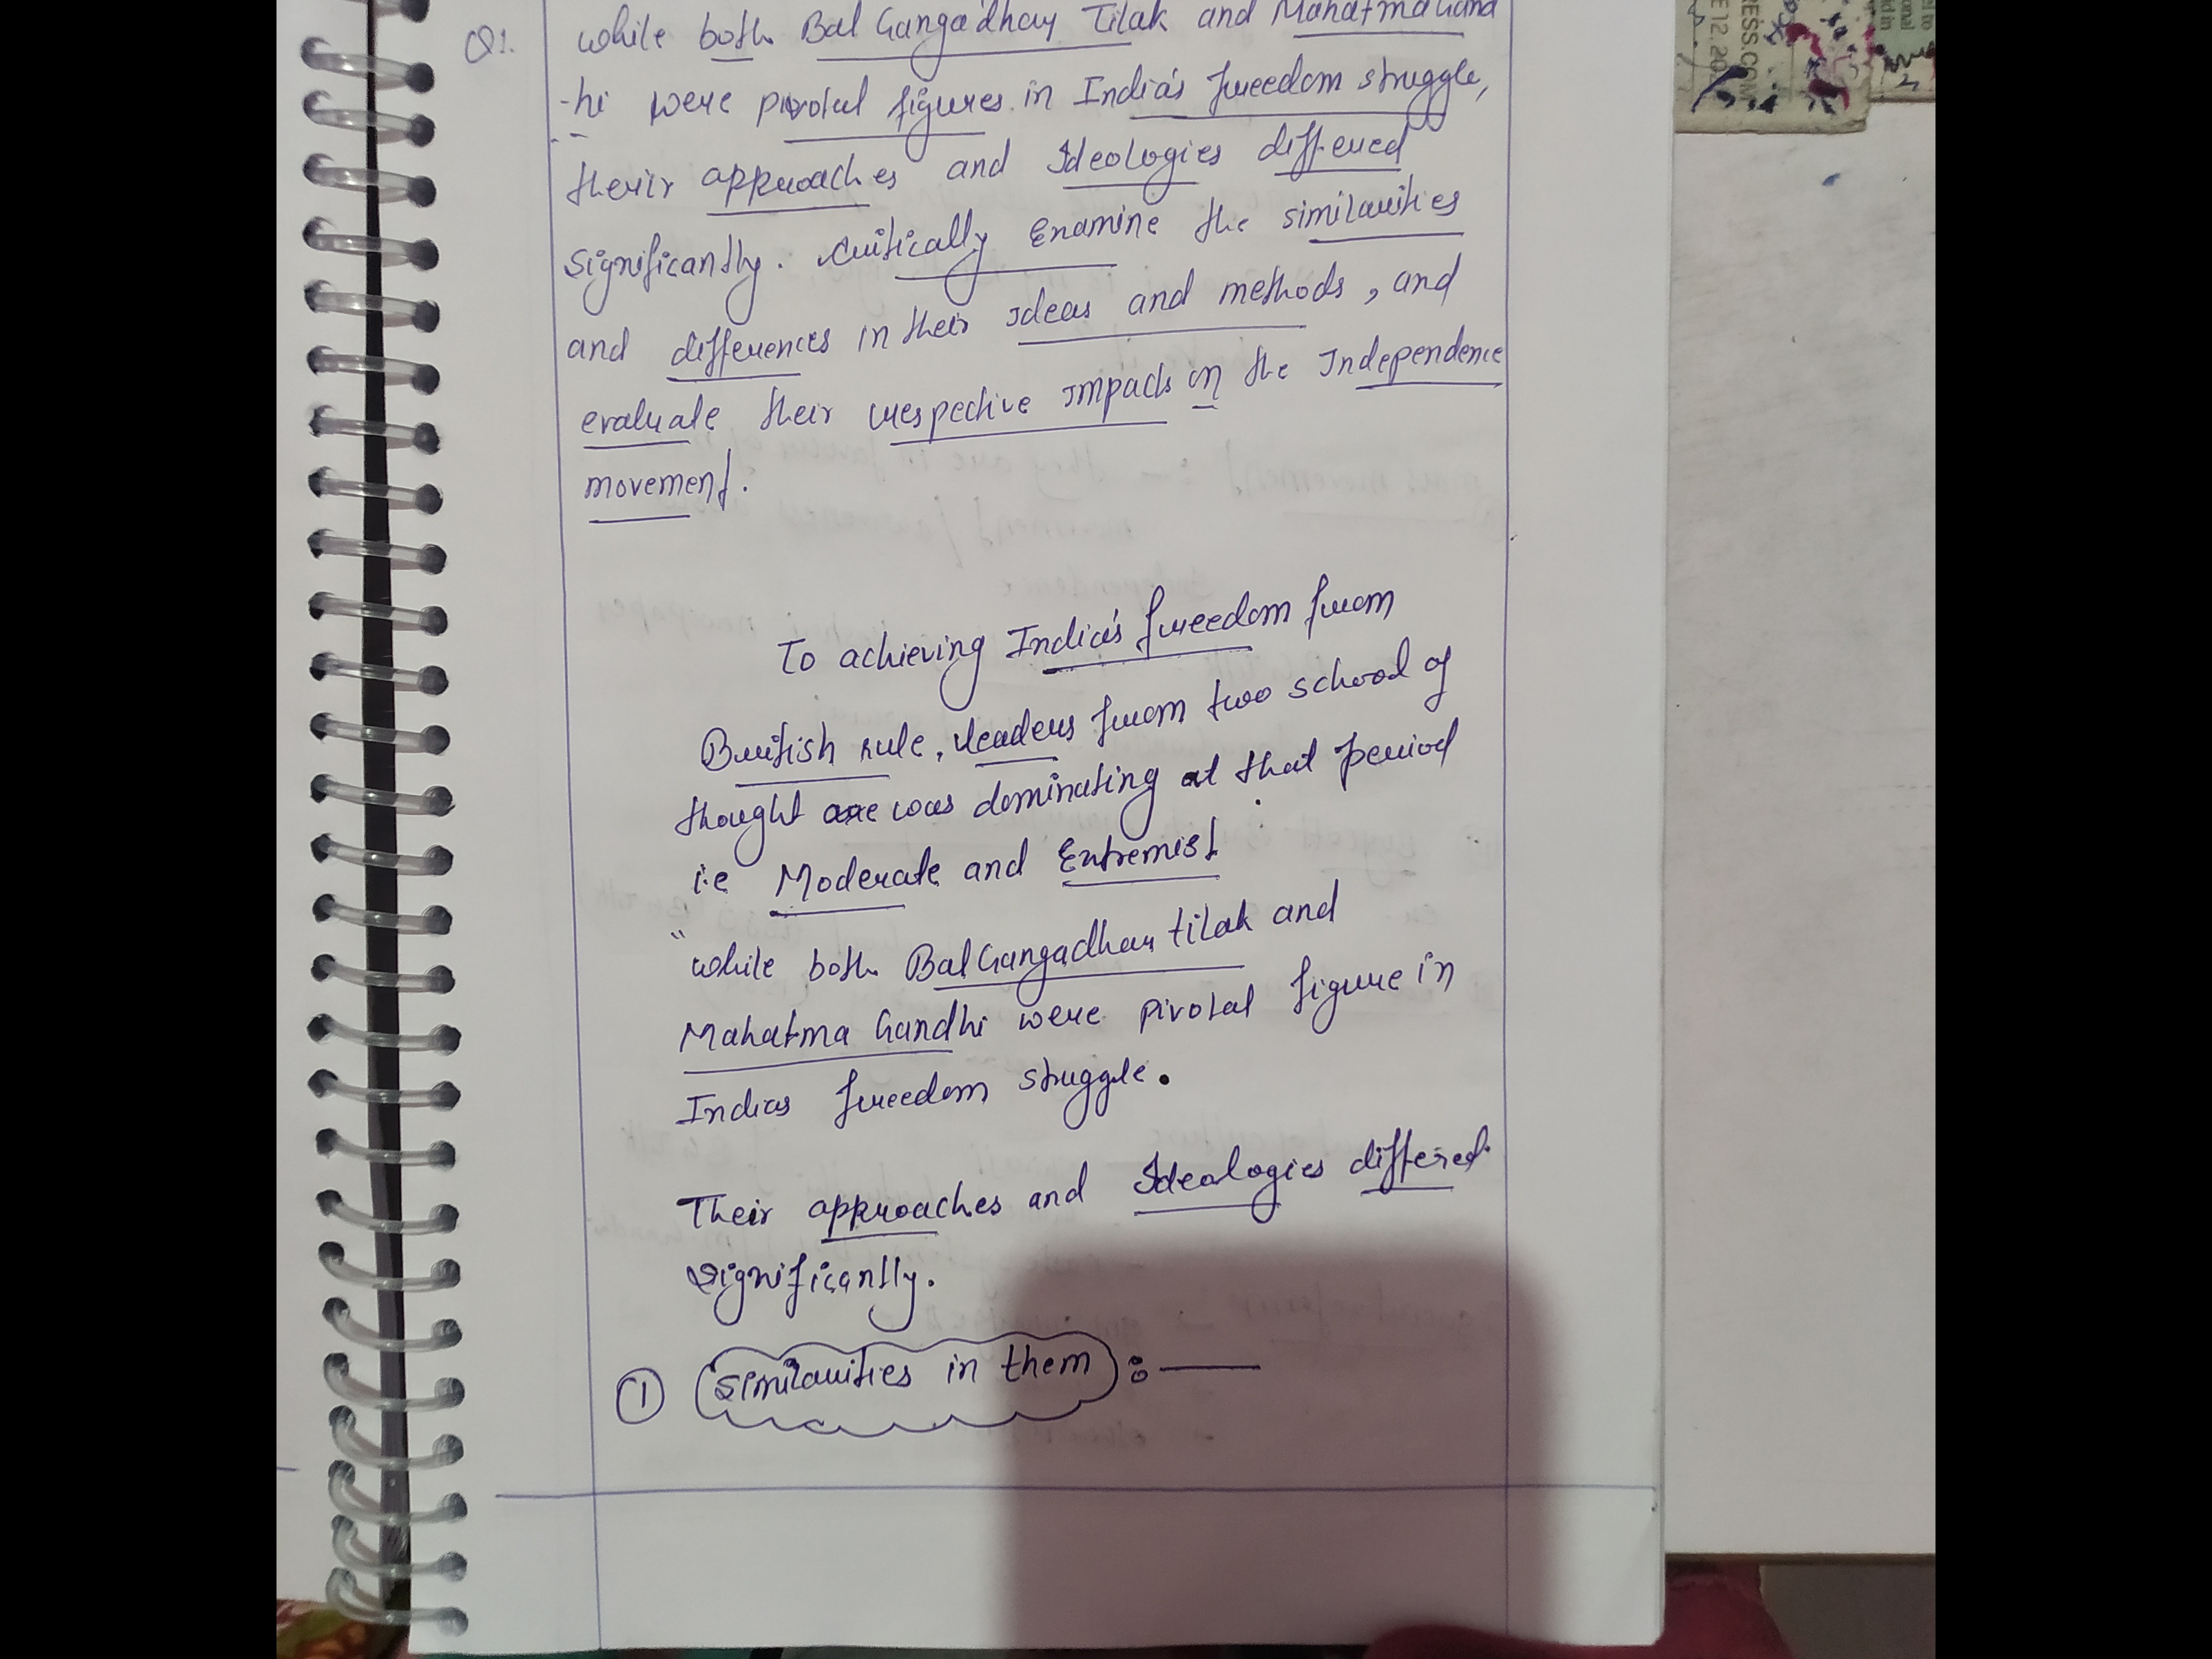 Q1. while both Bal Gangadhar Tilak and Mahatma Gand
-hi were pivotal figures in India's freedom struggle,
their approaches and Ideologies differed
significantly. critically Examine the similarities
and differences in their Ideas and methods, and
evaluate their respective impacts on the Independence
movement.
To achieving India's freedom from
British rule, leaders from two school of
thought was dominating at that period
i.e Moderate and Extremist
"while both Bal Gangadhar tilak and
Mahatma Gandhi were pivotal figure in
Indias freedom struggle.
Their approaches and Ideologies differed
significantly.
① similarities in them :—
RESS.COM
E12, 20